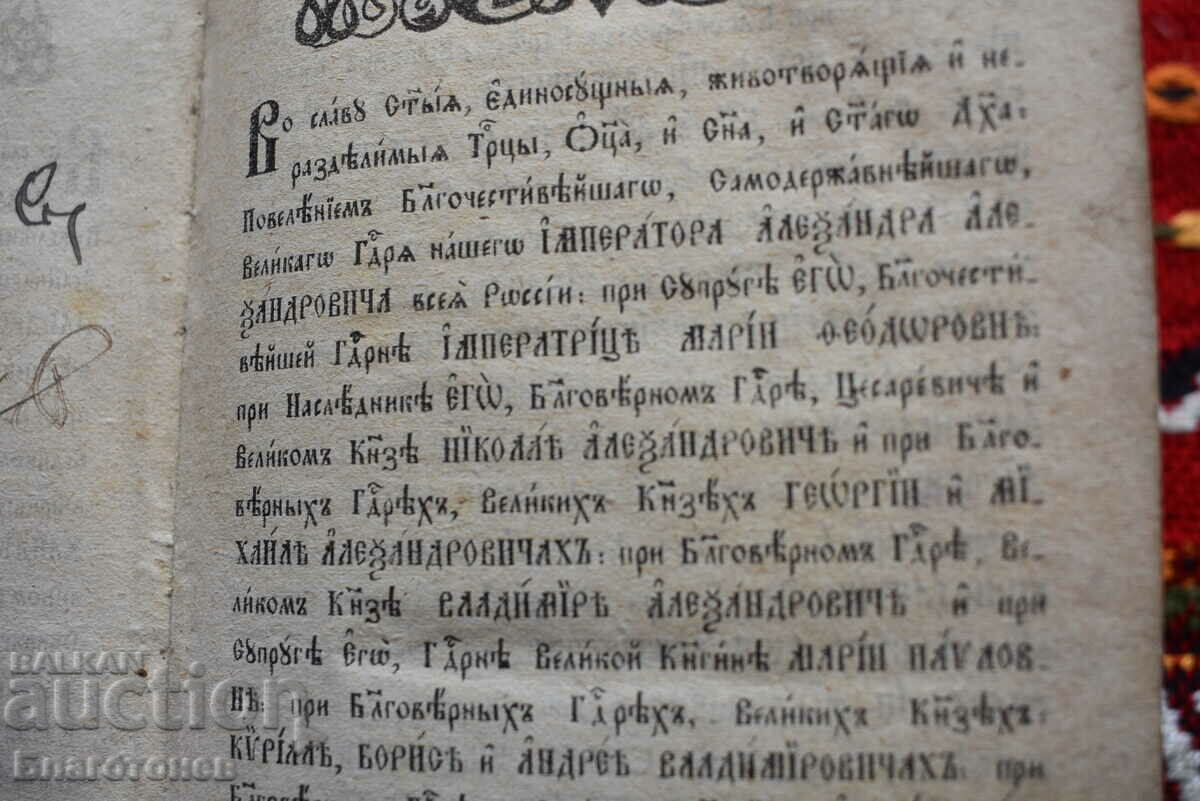 Во славу Ст҃ы́ѧ, є҆диносꙋ́щныѧ, животворѧ́щїѧ и҆ не-
раздѣли́мыѧ Трⷪ҇цы, Ѻ҆ц҃а̀, и҆ Сн҃а, и҆ Ст҃а́гѡ Дх҃а:
Повелѣ́нїемъ Бл҃гочести́вѣйшагѡ, Самодержа́внѣйшагѡ,
Вели́кагѡ Гдⷭ҇рѧ на́шегѡ І҆МПЕРА́ТОРА А҆ЛЕѮА́НДРА А҆ЛЕ-
ѮА́НДРОВИЧА всеѧ̀ Рѡссі́и: при Сꙋпрꙋ́гѣ Є҆гѡ̀, Бл҃гочести́-
вѣйшей Гдⷭ҇рнѣ І҆МПЕРАТРІ́ЦѢ МАРІ́И Ѳео́дѡровнѣ:
при Наслѣ́дникѣ Є҆гѡ̀, Бл҃говѣ́рномъ Гдⷭ҇рѣ, Цесаре́вичѣ и҆
Вели́комъ Кн҃зѣ НІКОЛА́Ѣ А҆ЛЕѮА́НДРОВИЧѢ и҆ при Бл҃го-
вѣ́рныхъ Гдⷭ҇рѣхъ, Вели́кихъ Кн҃зѣхъ ГЕѠ́РГІИ и҆ МІ-
ХАИ́ЛѢ А҆ЛЕѮА́НДРОВИЧАХЪ: при Бл҃говѣ́рномъ Гдⷭ҇рѣ, Ве-
ли́комъ Кн҃зѣ ВЛАДИ́МІРѢ А҆ЛЕѮА́НДРОВИЧѢ и҆ при
Сꙋпрꙋ́гѣ Є҆гѡ̀, Гдⷭ҇рнѣ Вели́кой Кн҃ги́нѣ МАРІ́И ПА́ѴЛОВ-
НѢ: при Бл҃говѣ́рныхъ Гдⷭ҇рѣхъ, Вели́кихъ Кн҃зѣхъ:
КѴРІ́ЛЛѢ, БОРИ́СѢ и҆ А҆НДРЕ́Ѣ ВЛАДИ́МІРОВИЧАХЪ: при
BALKAN
auction
Благотонев